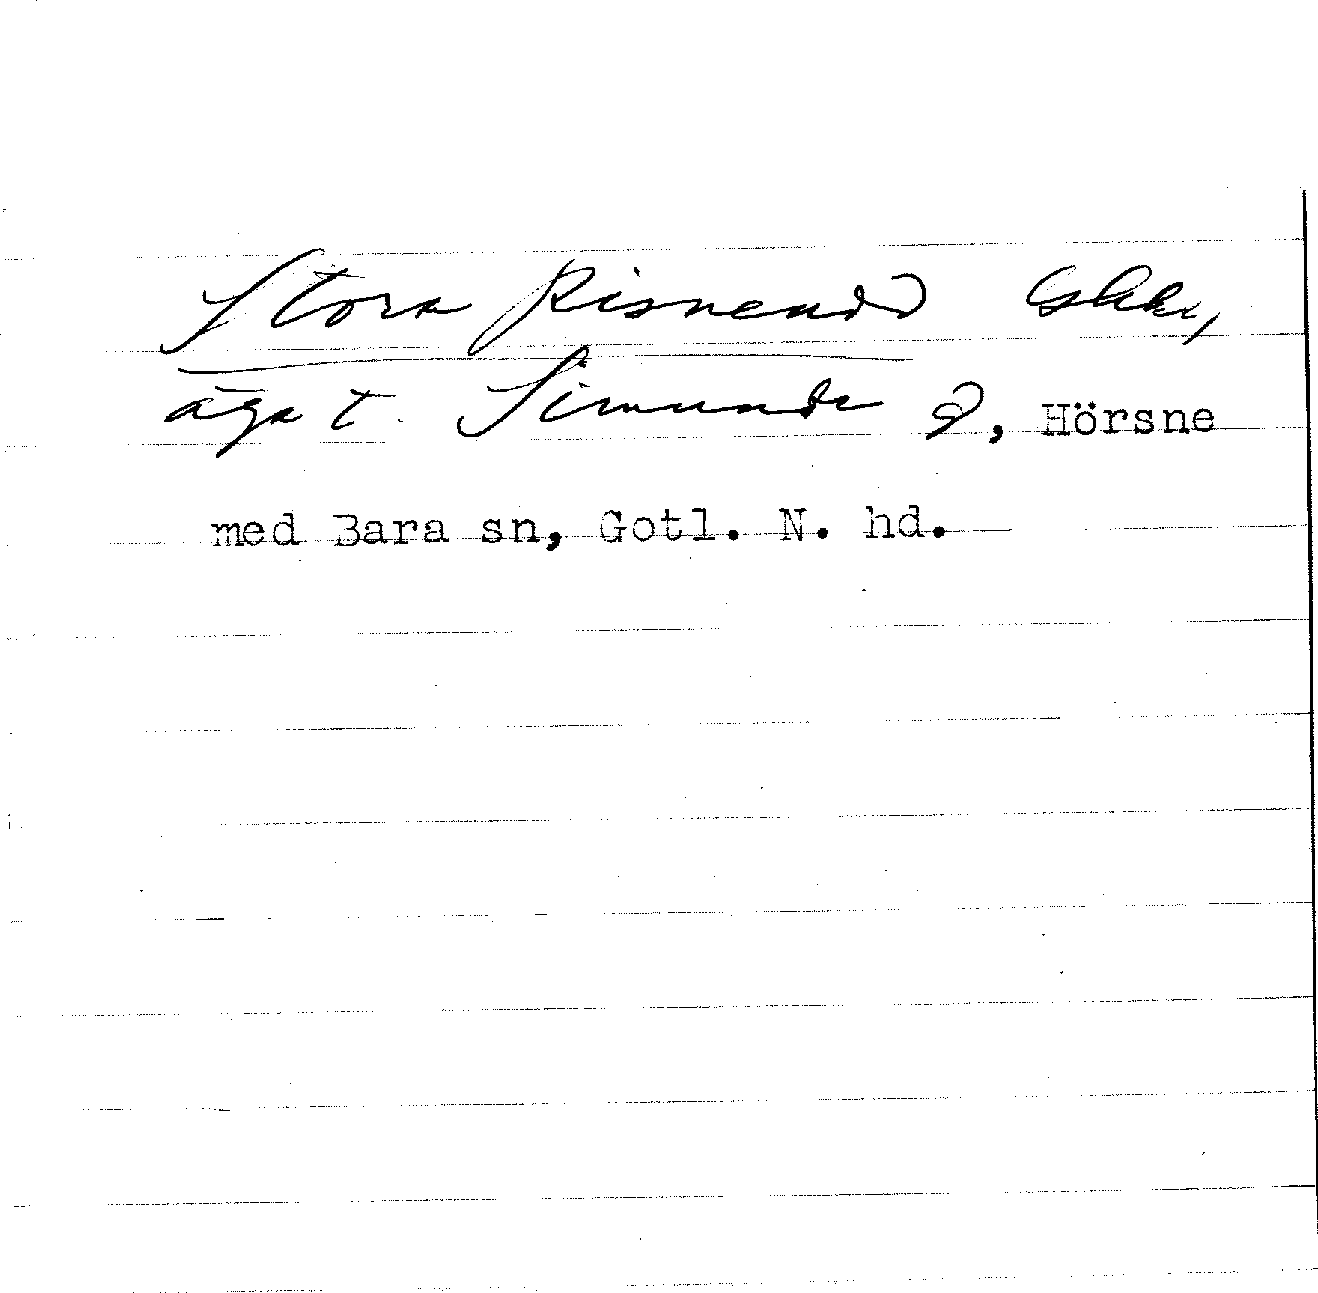 Stora Risneudd
äga t. Simunde, Hörsne
med Bara sn, Gotl. N. hd.